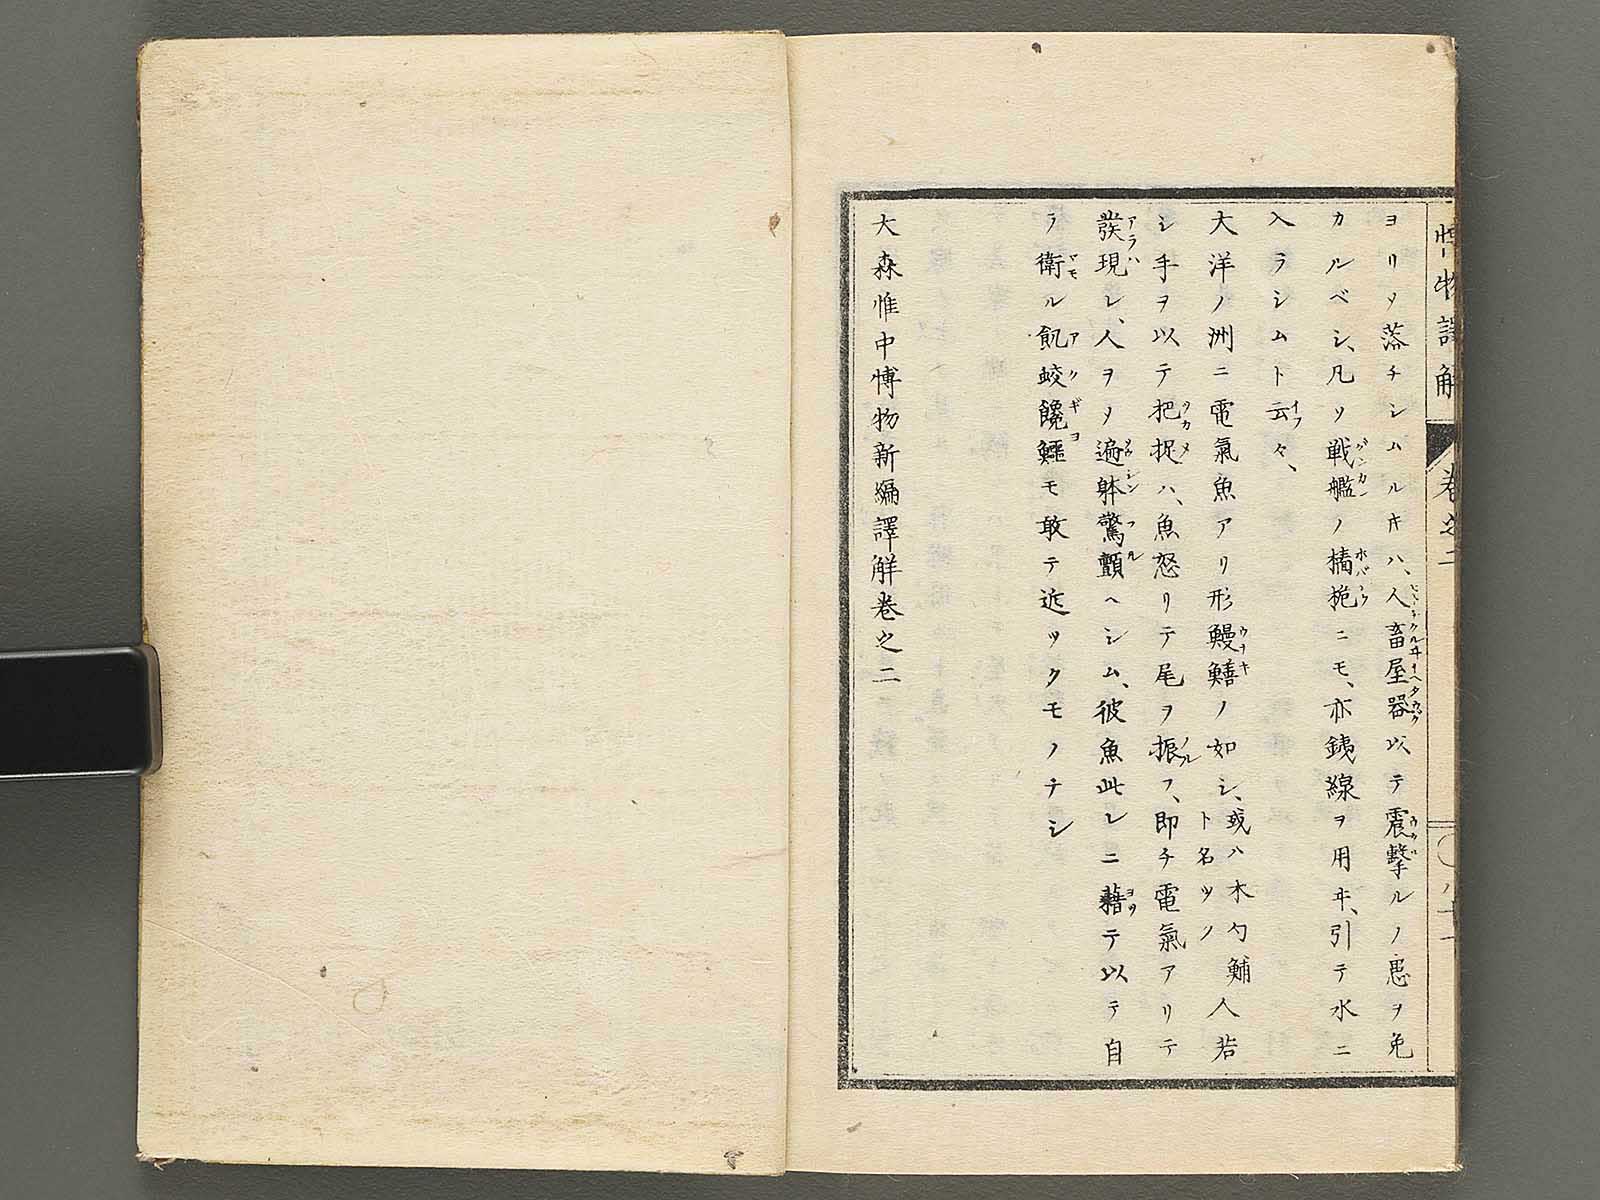 博物譯解
卷之二
ヨリ〆落チシムルキハ、人畜屋器以テ震擊ルノ患ヲ免
カルベシ、凡ソ戦艦ノ檣桅ニモ、亦銕線ヲ用ヰ、引テ水ニ
入ラシムト云々、
大洋ノ洲ニ電氣魚アリ形鰻鱔ノ如シ、或ハ木勺鯆ト名ツク人若
シ手ヲ以テ把捉ハ、魚怒リテ尾ヲ振フ、即チ電氣アリテ
發現レ、人ヲ〆遍躰驚顫ヘシム、彼魚此レニ藉テ以テ自
ラ衛ル飢蛟饞鱷モ敢テ近ツクモノナシ
大森惟中博物新編譯解卷之二